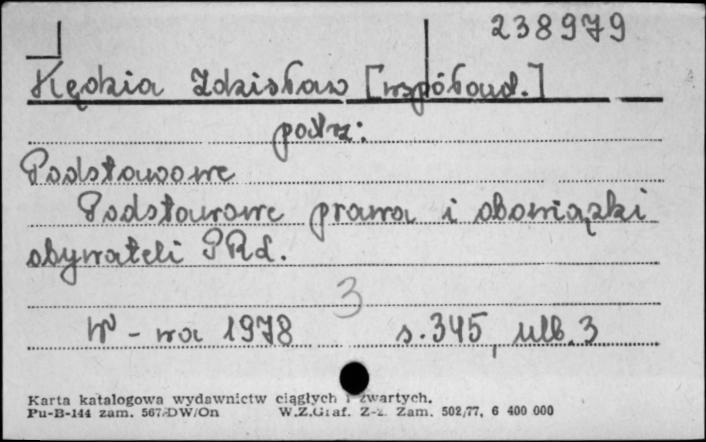 238979
Kędzia Zdzisław [współaud.]
patrz:
Podstawowe
Podstawowe prawa i obowiązki
obywateli PRL.
3
W-wa 1978 s. 345, ulb. 3
Karta katalogowa wydawnictw ciągłych i zwartych.
Pu-B-144 zam. 567/DW/On W.Z.Graf. Z-z. Zam. 502/77, 6 400 000